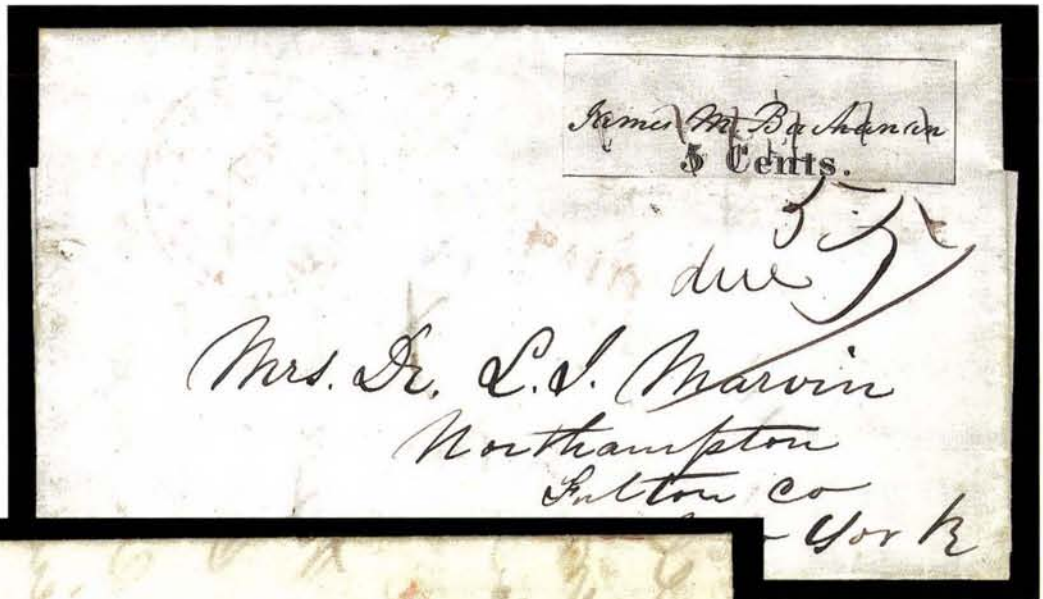 James M. Buchanan
5 Cents.
due 5
Mrs. Dr. L. I. Marvin
Northampton
Fulton Co
York